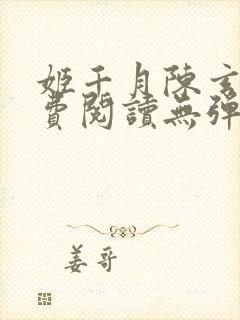 姬千月陳玄
費閱讀無彈
姜哥